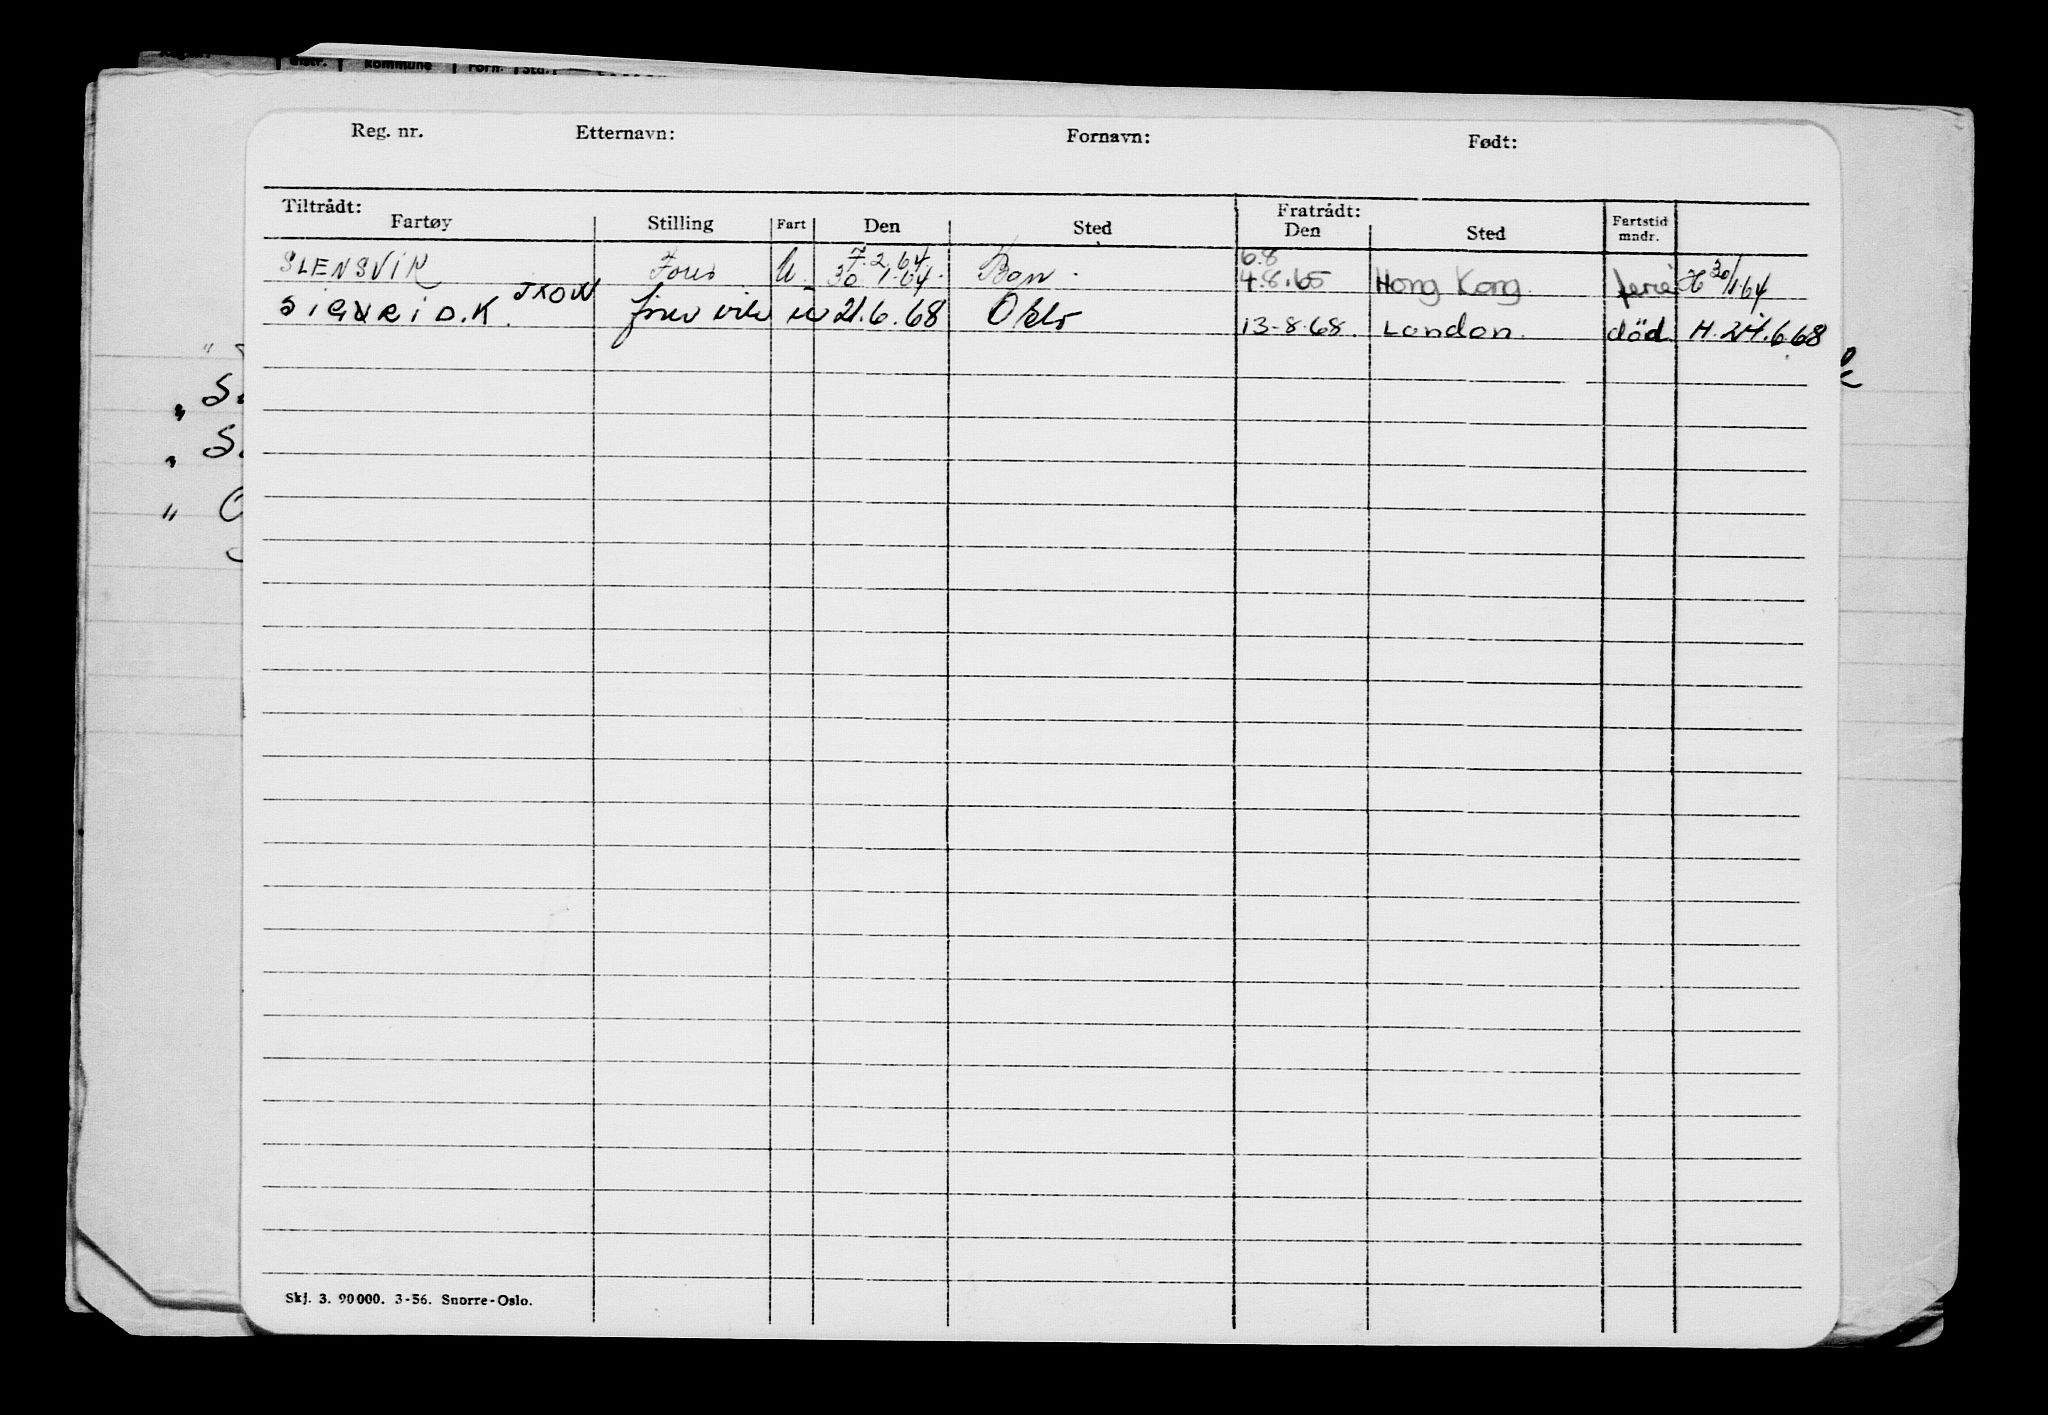 distr. kommune Forn. Std.
Reg. nr. Etternavn: Fornavn: Født:
Tiltrådt: Fratrådt:
Fartøy Stilling Fart Den Sted Den Sted Fartstid mndr.
7.2.64. 6.8
SLENSVIK U. 30.1.64. 4.8.65 Hong Kong. ferie H 30/1.64
SIGURID.K. JXOW 21.6.68 Oslo 13-8.68. London. död H. 24.6.68
Skj. 3. 90000. 3-56. Snorre-Oslo.